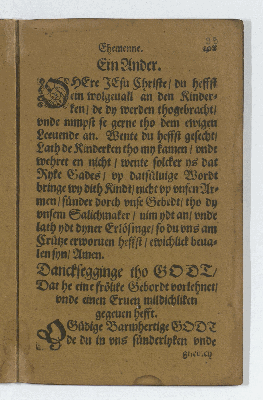 Ehemenne.
Ein Ander.
OHEre JEsu Christe/ du heffst
em wolgeuall an den Kinder-
ken/ de dy werden thogebracht/
vnde nimpst se gerne tho dem ewigen
Leeuende an. Wente du heffst gesecht/
Lath de Kinderken tho my kamen/ vnde
wehret en nicht/ wente solcker ys dat
Ryke Gades/ vp datsüluige Wordt
bringe wy dith Kindt/ nicht vp vnsen Ar-
men/ sünder dorch vnse Gebedt/ tho dy
vnsem Salichmaker/ nim ydt an/ vnde
lath ydt dyner Erlösinge/ so du vns am
Crütze erworuen heffst/ ewichlick beua-
len syn/ Amen.
Dancksegginge tho GODT/
Dat he eine frölike Gebordt vorlehnet/
vnde einen Eruen mildichliken
gegeuen hefft.
OGüdige Barmhertige GODT
de du in vns sünderlyken vnde